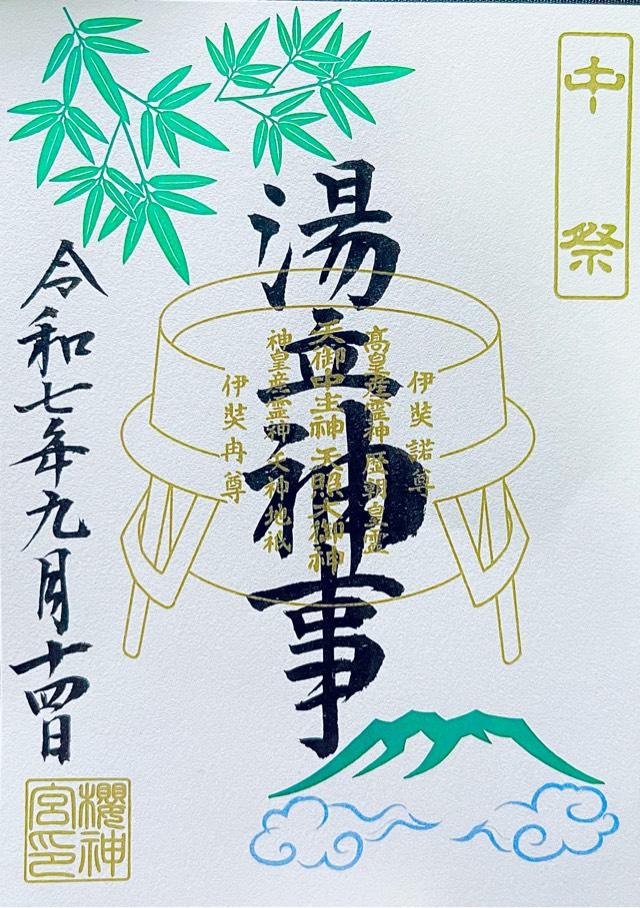 中祭
湯立神事
伊奘諾尊
高皇産霊神 歴朝皇霊
天御中主神 天照大御神
神皇産霊神 天神地祇
伊奘冉尊
令和七年九月十四日
櫻神
宮印